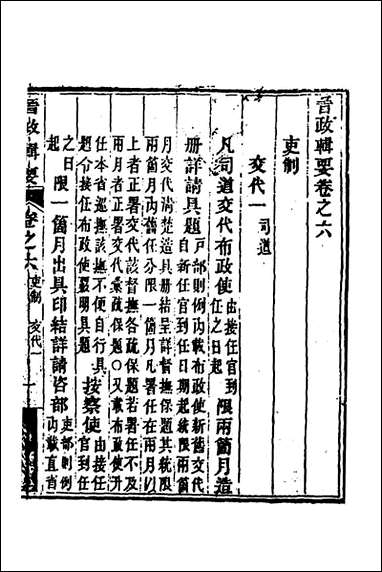 晉政輯要卷之六
吏制
交代一 司道
凡司道交代布政使 由接任官到任之日起 限兩箇月造
册詳請具題 戶部則例內載布政使新舊交代自新任官到任日期起統限兩箇
月交代清楚造具册結呈詳督撫保題其統限兩箇月內舊任分限一箇月凡署任在兩月以
上者正署交代該督撫各疏保題若署任不及兩月者正署交代彙疏保題○又載布政使升
任本省巡撫該撫不便自行具題令接任布政使聲明具題 按察使 由接任官到任
之日起 限一箇月出具印結詳請咨部 吏部則例內載直省
晉政輯要 卷之六 吏制 交代一 一